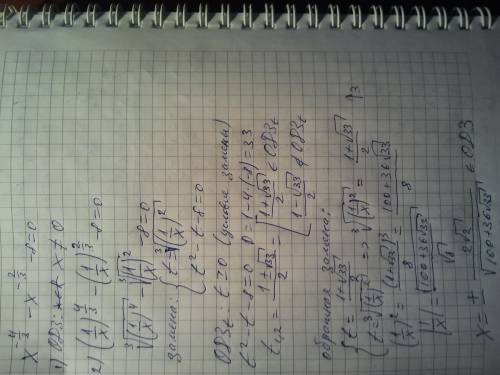 x^{-4/3} - x^{-2/3} - 8 = 0
1) ОДЗ: x ≠ 0
2) (1/x)^{4/3} - (1/x)^{2/3} - 8 = 0
∛(1/x)^4 - ∛(1/x)^2 - 8 = 0
замена: { t = ∛(1/x)^2
t^2 - t - 8 = 0
ОДЗ_t: t ≥ 0 (условие замены)
t^2 - t - 8 = 0 D = 1 - 4·(-8) = 33
t_{1,2} = (1 ± √33)/2 = [ (1 + √33)/2 ∈ ОДЗ_t
(1 - √33)/2 ∉ ОДЗ_t
обратная замена:
{ t = (1 + √33)/2
t = ∛(1/x)^2 => ∛(1/x)^2 = (1 + √33)/2 |^3
(1/x)^2 = (1 + √33)^3/8 = (100 + 36√33)/8
|1/x| = √(100 + 36√33)/√8
x = ± 2√2/√(100 + 36√33) ∈ ОДЗ